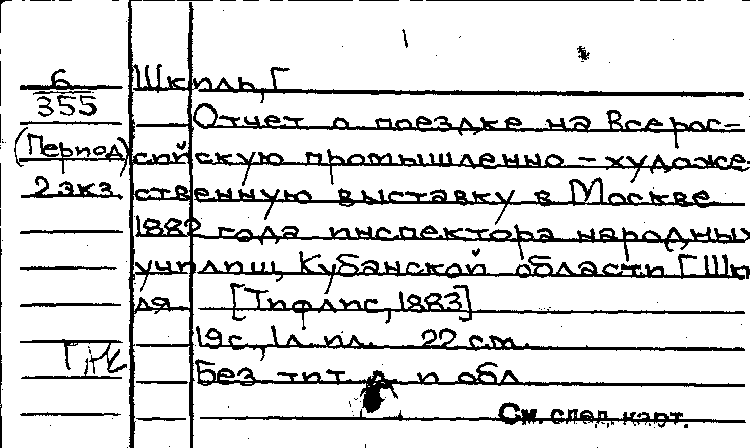 6
355
(Период)
2 экз.
Шкиль, Г
Отчет о поездке на Всерос-
сийскую промышленно-художе
ственную выставку в Москве
1882 года инспектора народных
училищ, Кубанской области Г Шки
ля [Тифлис, 1883]
19 с., 1 л. пл. 22 см.
Без тит. л и обл
См. след. карт.